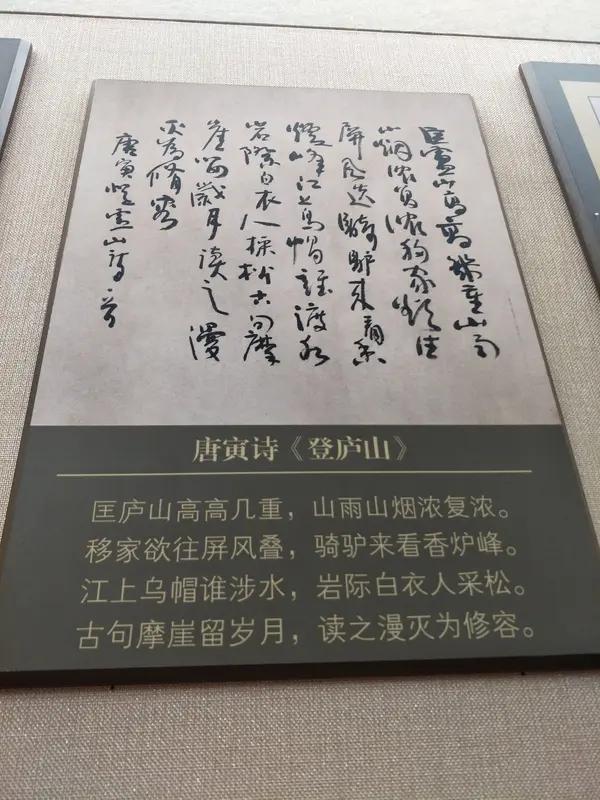 匡庐山高高几重山雨
山烟浓复浓移家欲往
屏风迭骑驴来看香
炉峰江上乌帽谁渡水
岩际白衣人采松古句摩
崖留岁月读之漫
灭为修容
唐寅登庐山诗一首
唐寅诗《登庐山》
匡庐山高高几重，山雨山烟浓复浓。
移家欲往屏风叠，骑驴来看香炉峰。
江上乌帽谁涉水，岩际白衣人采松。
古句摩崖留岁月，读之漫灭为修容。